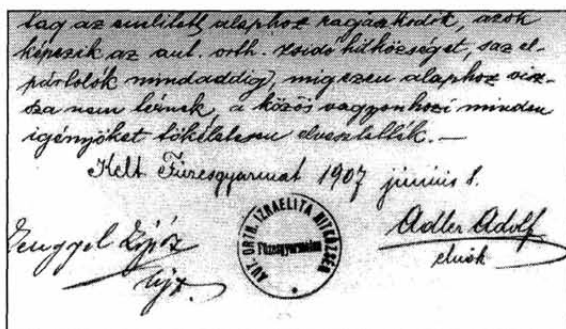 tag az említett alaphoz ragaszkodók, azok
képezik az aut. orth. zsidó hitközséget, s az el-
pártolók mindaddig, míg ezen alaphoz visz-
sza nem térnek, a közös vagyonhozi minden
igényöket tökéletesen elvesztették. —
Kelt Füzesgyarmat 1907 június 1.
AUT. ORTH. IZRAELITA HITKÖZSÉG
Füzesgyarmaton
Adler Adolf
elnök